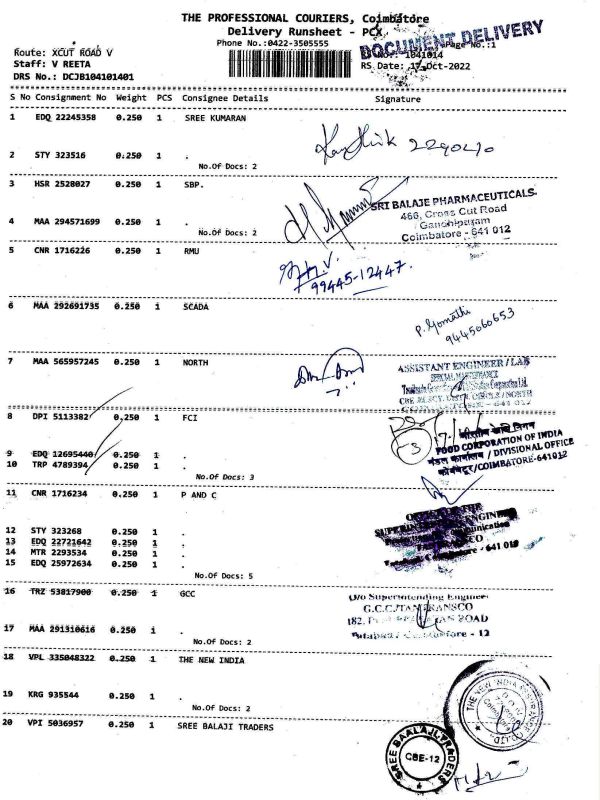 THE PROFESSIONAL COURIERS, Coimbatore
Delivery Runsheet - PCX
Phone No.:0422-3505555
DOCUMENT DELIVERY
Page No.:1
Route: XCUT ROAD V
1041014
Staff: V REETA
RS Date: 17-Oct-2022
DRS No.: DCJB104101401
S No Consignment No Weight PCS Consignee Details Signature
1 EDQ 22245358 0.250 1 SREE KUMARAN
2 STY 323516 0.250 1 .
No.Of Docs: 2
3 HSR 2528027 0.250 1 SBP.
SRI BALAJE PHARMACEUTICALS
466, Cross Cut Road
Gandhipuram
Coimbatore - 641 012
4 MAA 294571699 0.250 1 .
No.Of Docs: 2
5 CNR 1716226 0.250 1 RMU
99445-12447.
6 MAA 292691735 0.250 1 SCADA
P. Gomathi
9445060653
7 MAA 565957245 0.250 1 NORTH
ASSISTANT ENGINEER / LAB
SPECIAL MAINTENANCE
8 DPI 5113382 0.250 1 FCI
3
भारतीय खाद्य निगम
FOOD CORPORATION OF INDIA
मंडल कार्यालय / DIVISIONAL OFFICE
कोयंबटूर/COIMBATORE-641012
9 EDQ 12695440 0.250 1 .
10 TRP 4789394 0.250 1 .
No.Of Docs: 3
11 CNR 1716234 0.250 1 P AND C
12 STY 323268 0.250 1 .
13 EDQ 22721642 0.250 1 .
14 MTR 2293534 0.250 1 .
15 EDQ 25972634 0.250 1 .
No.Of Docs: 5
- 641 012
16 TRZ 53817900 0.250 1 GCC
O/o Superintending Engineer
G.C.C./TANTRANSCO
Tatabad / Coimbatore - 12
17 MAA 291310616 0.250 1 .
No.Of Docs: 2
18 VPL 335048322 0.250 1 THE NEW INDIA
19 KRG 935544 0.250 1 .
No.Of Docs: 2
THE NEW INDIA ASSURANCE CO. LTD.
20 VPI 5036957 0.250 1 SREE BALAJI TRADERS
SREE BAALAJI TRADERS
CBE-12